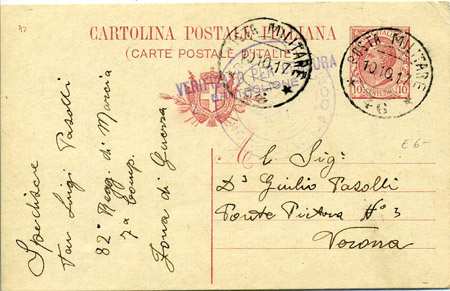 CARTOLINA POSTALE ITALIANA
(CARTE POSTALE D'ITALIE)
POSTA MILITARE
10.10.17
POSTA MILITARE
10.10.17
46
VERIFICATO PER CENSURA
10 CENTESIMI 10
E 6-
Al Sigr
Dr Giulio Pasolli
Ponte Pietra No 3
Verona
Speditore
Luigi Pasolli
82° Regg. di Marcia
7a Comp.
Zona di Guerra